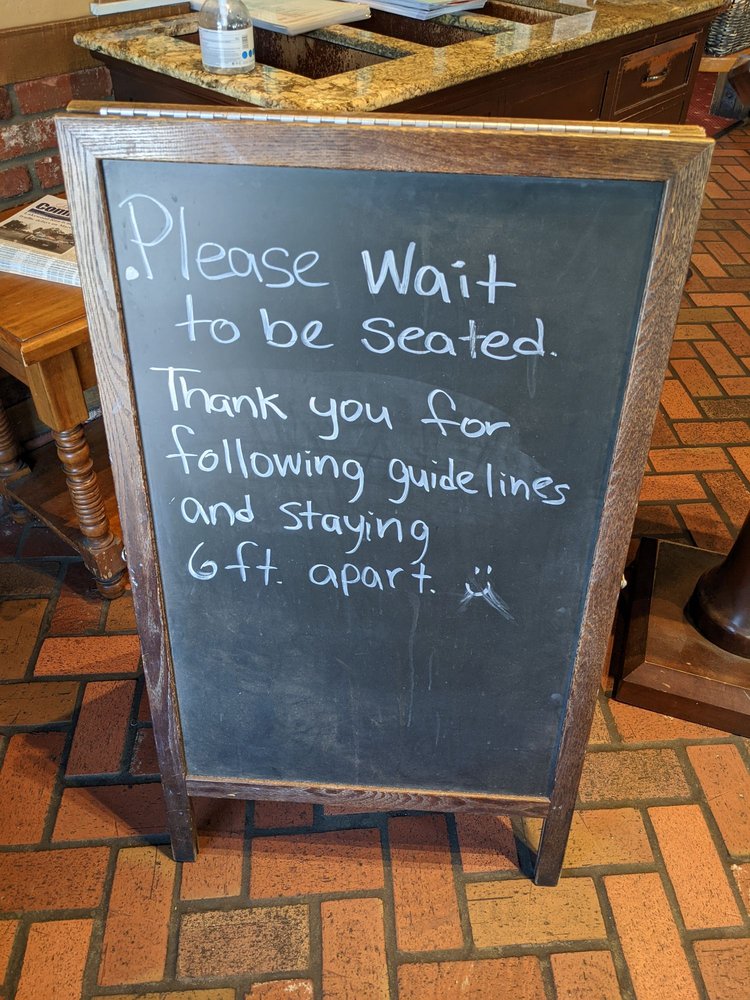 Please Wait
to be seated.
Thank you for
following guidelines
and staying
6ft. apart.